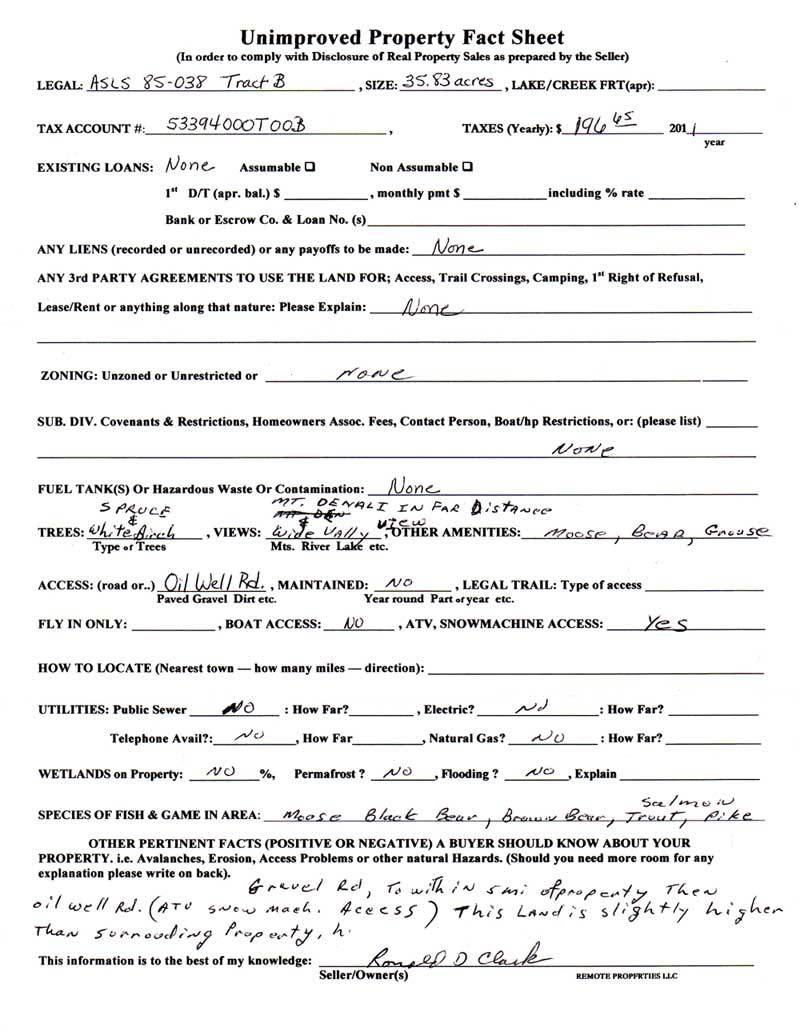 Unimproved Property Fact Sheet
(In order to comply with Disclosure of Real Property Sales as prepared by the Seller)
LEGAL: ASLS 85-038 Tract B , SIZE: 35.83 acres , LAKE/CREEK FRT(apr):
TAX ACCOUNT #: 53394000T00B , TAXES (Yearly): $ 196 65 2011
year
EXISTING LOANS: None Assumable ❑ Non Assumable ❑
1st D/T (apr. bal.) $ , monthly pmt $ including % rate
Bank or Escrow Co. & Loan No. (s)
ANY LIENS (recorded or unrecorded) or any payoffs to be made: None
ANY 3rd PARTY AGREEMENTS TO USE THE LAND FOR; Access, Trail Crossings, Camping, 1st Right of Refusal,
Lease/Rent or anything along that nature: Please Explain: None
ZONING: Unzoned or Unrestricted or None
SUB. DIV. Covenants & Restrictions, Homeowners Assoc. Fees, Contact Person, Boat/hp Restrictions, or: (please list)
None
FUEL TANK(S) Or Hazardous Waste Or Contamination: None
SPRUCE MT. DENALI IN FAR Distance
& & View
TREES: White Birch , VIEWS: Wide Vally , OTHER AMENITIES: Moose, Bear, Grouse
Type or Trees Mts. River Lake etc.
ACCESS: (road or..) Oil Well Rd. , MAINTAINED: NO , LEGAL TRAIL: Type of access
Paved Gravel Dirt etc. Year round Part of year etc.
FLY IN ONLY: , BOAT ACCESS: NO , ATV, SNOWMACHINE ACCESS: Yes
HOW TO LOCATE (Nearest town — how many miles — direction):
UTILITIES: Public Sewer NO : How Far? , Electric? No : How Far?
Telephone Avail?: No , How Far , Natural Gas? NO : How Far?
WETLANDS on Property: NO %, Permafrost ? NO , Flooding ? NO , Explain
Salmon
SPECIES OF FISH & GAME IN AREA: Moose Black Bear, Brown Bear, Trout, Pike
OTHER PERTINENT FACTS (POSITIVE OR NEGATIVE) A BUYER SHOULD KNOW ABOUT YOUR
PROPERTY. i.e. Avalanches, Erosion, Access Problems or other natural Hazards. (Should you need more room for any
explanation please write on back).
Gravel Rd, To within 5mi of property Then
oil well Rd. (ATV snow mach. Access) This Land is slightly higher
Than surrouding Property, h.
This information is to the best of my knowledge: Ronald D Clark
Seller/Owner(s) REMOTE PROPERTIES LLC